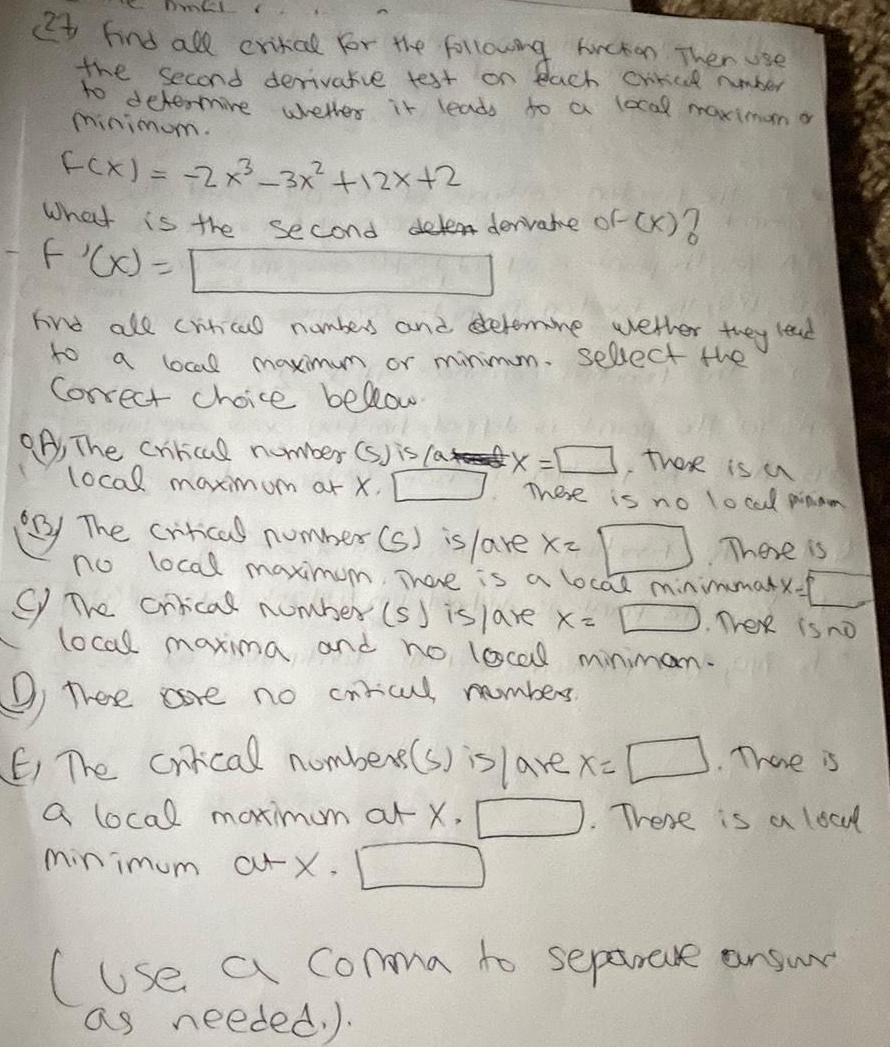 27, find all critical for the following function Then use
the second derivative test on each critical number
to determine whether it leads to a local maximum or
minimum.
f(x) = -2x³-3x²+12x+2
What is the second derivative of (x)?
f'(x) =
find all critical numbers and determine wether they lead
to a local maximum or minimum. sellect the
Correct choice bellow.
A, The critical number (s) is / a x = . There is a
local maximum at x. There is no local
B) The critical number (s) is/are x= . There is
no local maximum. There is a local minimum at x=
C) The critical number (s) is/are x= . There is no
local maxima and no local minimam.
D, There are no critical numbers.
E, The critical numbers(s) is/are x= . There is
a local maximum at x. . There is a local
minimum at x.
(use a comma to separate answer
as needed.).